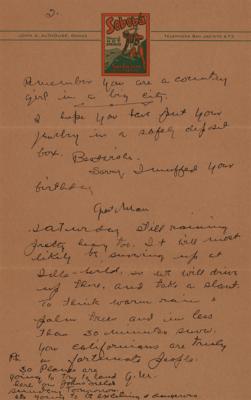 2.
JOHN A. ALTHOUSE, OWNER
TELEPHONE SAN JACINTO 673
Remember you are a country
girl in a big city.
I hope you have put your
jewelry in a safety deposit
box.
Sorry I muffed your
birthday
Saturday still raining
pretty heavy too. It will most
likely be snowing up at
so we will drive
up there, and take a
To think warm rain &
palm trees and in less
than 30 minutes snow.
You californians are truly
fortunate people.
G.M.
PS.
30 Planes are
going to try to land
here on John's field
Sunday tomorrow
its going to be exciting & dangerous